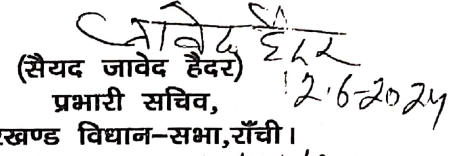 जावेद हैदर
(सैयद जावेद हैदर)
12.6-2024
प्रभारी सचिव,
रखण्ड विधान-सभा,राँची।